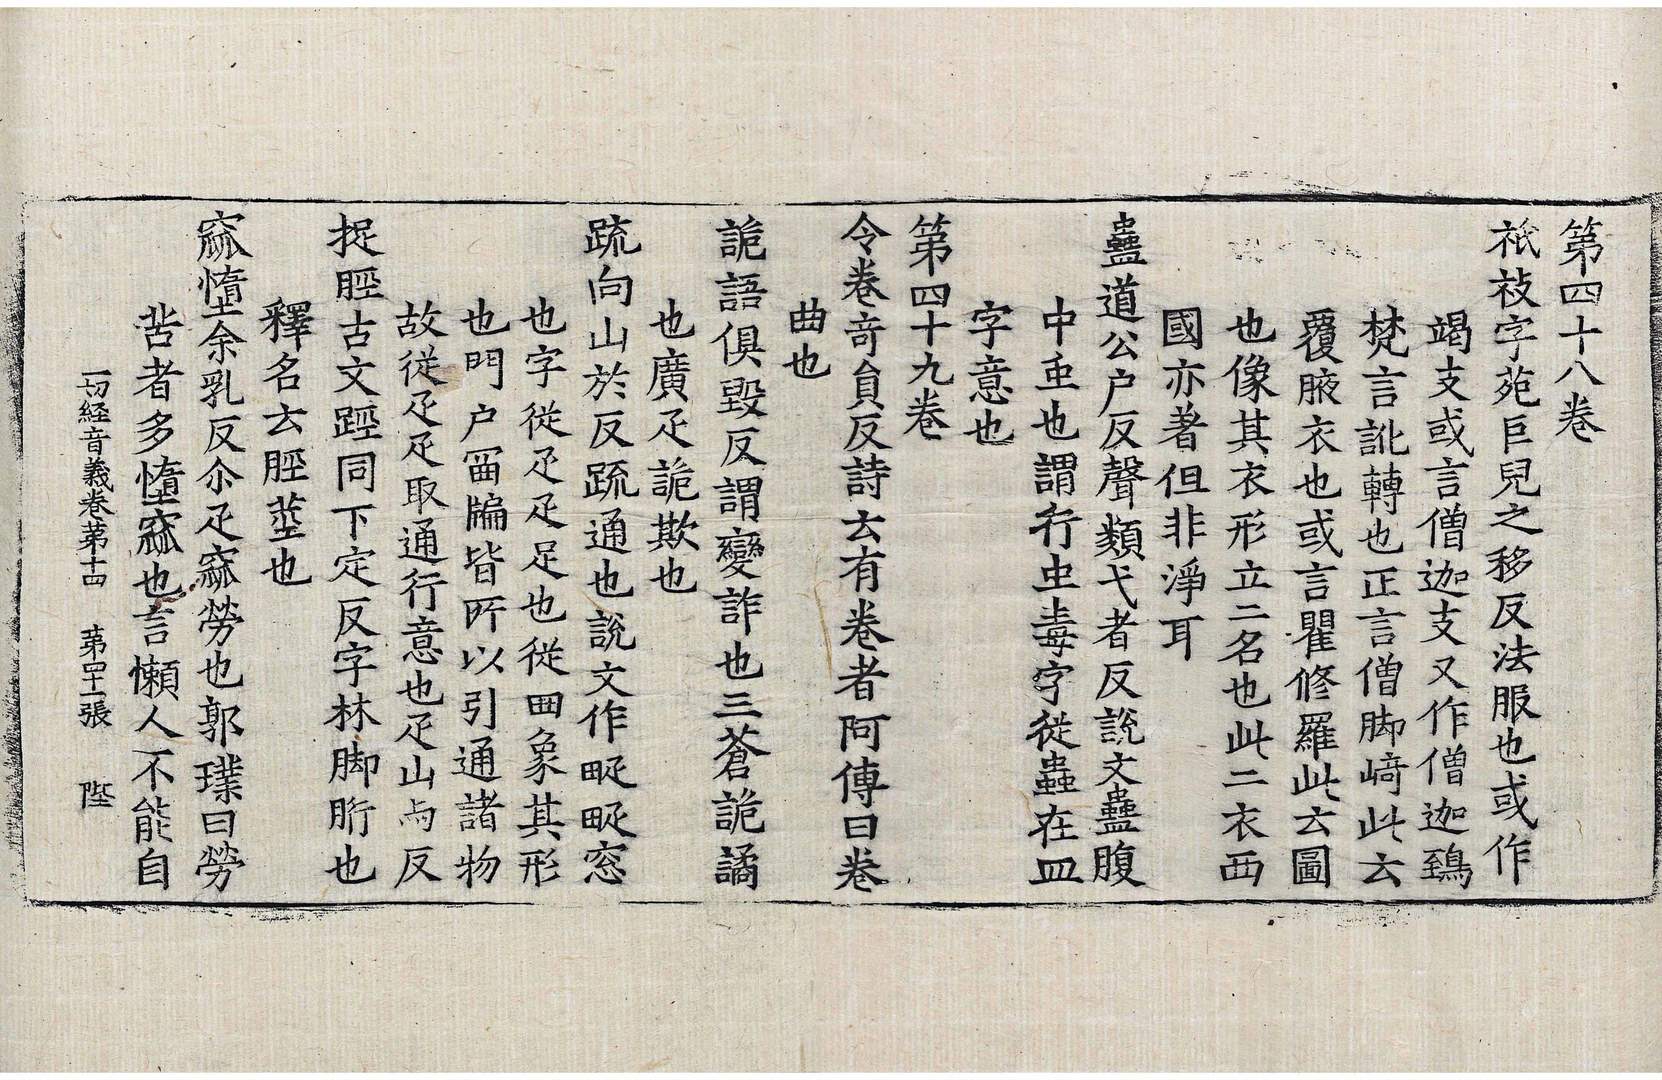 第四十八卷
祇衼字苑巨兒之移反法服也或作
竭支或言僧迦支又作僧迦鵄
梵言訛轉也正言僧脚﨑此云
覆腋衣也或言瞿修羅此云圖
也像其衣形立二名也此二衣西
國亦著但非淨耳
蠱道公户反聲類弋者反說文蠱腹
中䖝也謂行虫毒字從蟲在皿
字意也
第四十九卷
令卷奇貟反詩云有卷者阿傳曰卷
曲也
詭語俱毀反謂變詐也三蒼詭譎
也廣疋詭欺也
䟽向山於反䟽通也說文作𤴙𤴙窓
也字從疋疋足也從囬象其形
也門户窗牖皆所以引通諸物
故從疋疋取通行意也疋山㐰反
捉脛古文踁同下定反字林脚胻也
釋名云脛莖也
窳惰余乳反尒疋窳勞也郭璞曰勞
苦者多惰窳也言懶人不能自
一切經音義卷苐十四 苐四十一張 陛